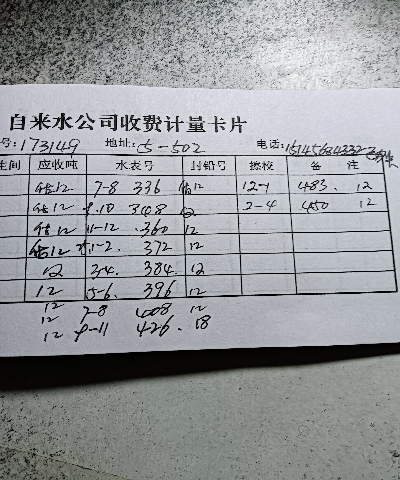 自来水公司收费计量卡片
号:173149 地址:5-502 电话:
间 应收吨 水表号 封铅号 验校 备 注
估12 7-8 336 估12 12-1 483. 12
估12 9.10 348 12 2-4 450 12
估12 11-12 .360 12
估12 1-2. 372 12
12 3-4. 384. 12
12 5-6. 396 12
12 7-8 408 12
12 9-11 426. 18